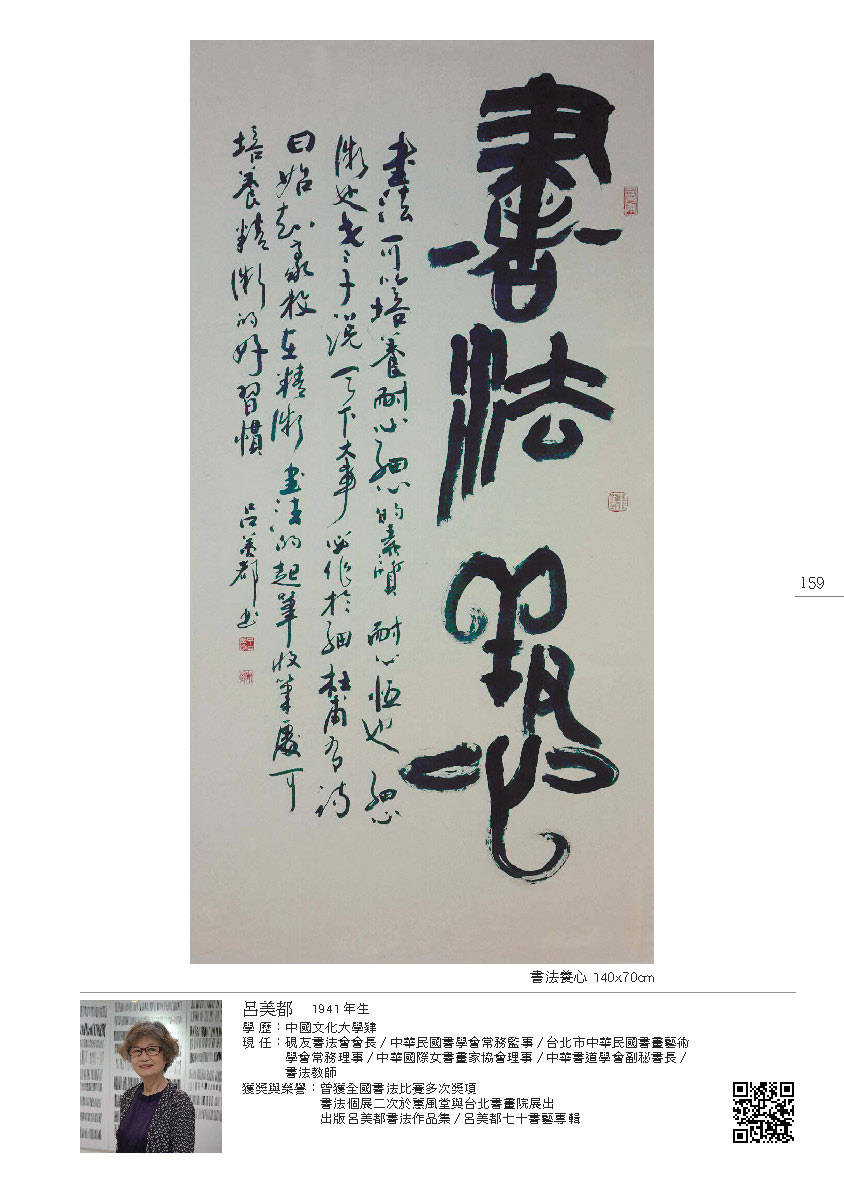 書法
書法可以培養耐心細心的素質 耐心恆也 細心
微也老子說天下大事必作於細杜甫有詩
曰始知豪放在精微書法的起筆收筆處可
培養精微的好習慣 呂美都書
159
書法養心 140x70cm
呂美都 1941年生
學 歷：中國文化大學肄
現 任：硯友書法會會長/中華民國書學會常務監事/台北市中華民國書畫藝術
學會常務理事/中華國際女書畫家協會理事/中華書道學會副秘書長/
書法教師
獲獎與榮譽：曾獲全國書法比賽多次獎項
書法個展二次於蕙風堂與台北書畫院展出
出版呂美都書法作品集/呂美都七十書藝專輯